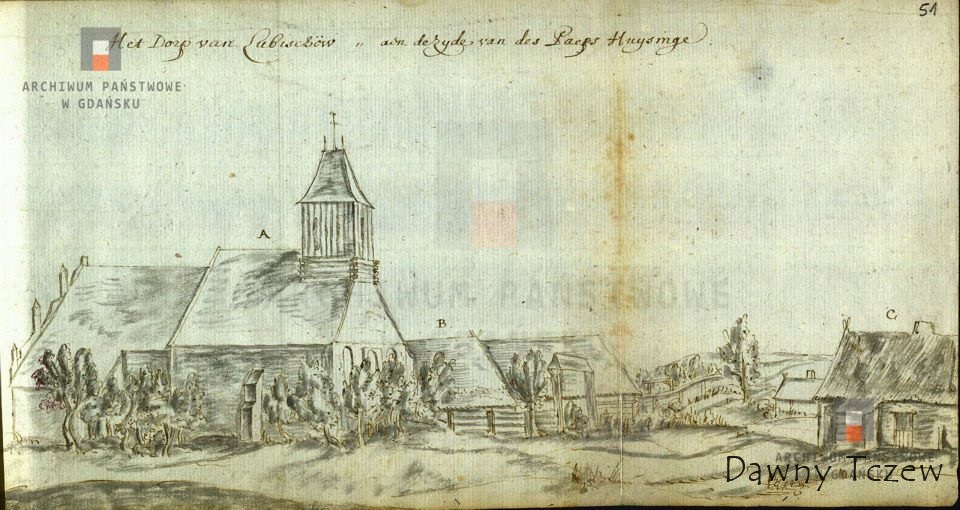 51
Het Dorp van Lubischöw „ aen de zyde, van des Paeps Huysinge.
ARCHIWUM PAŃSTWOWE
W GDAŃSKU
A
B
C
ARCHIWUM PAŃSTWOWE
ARCHIWUM PAŃSTWOWE
W GDAŃSKU
Dawny Tczew